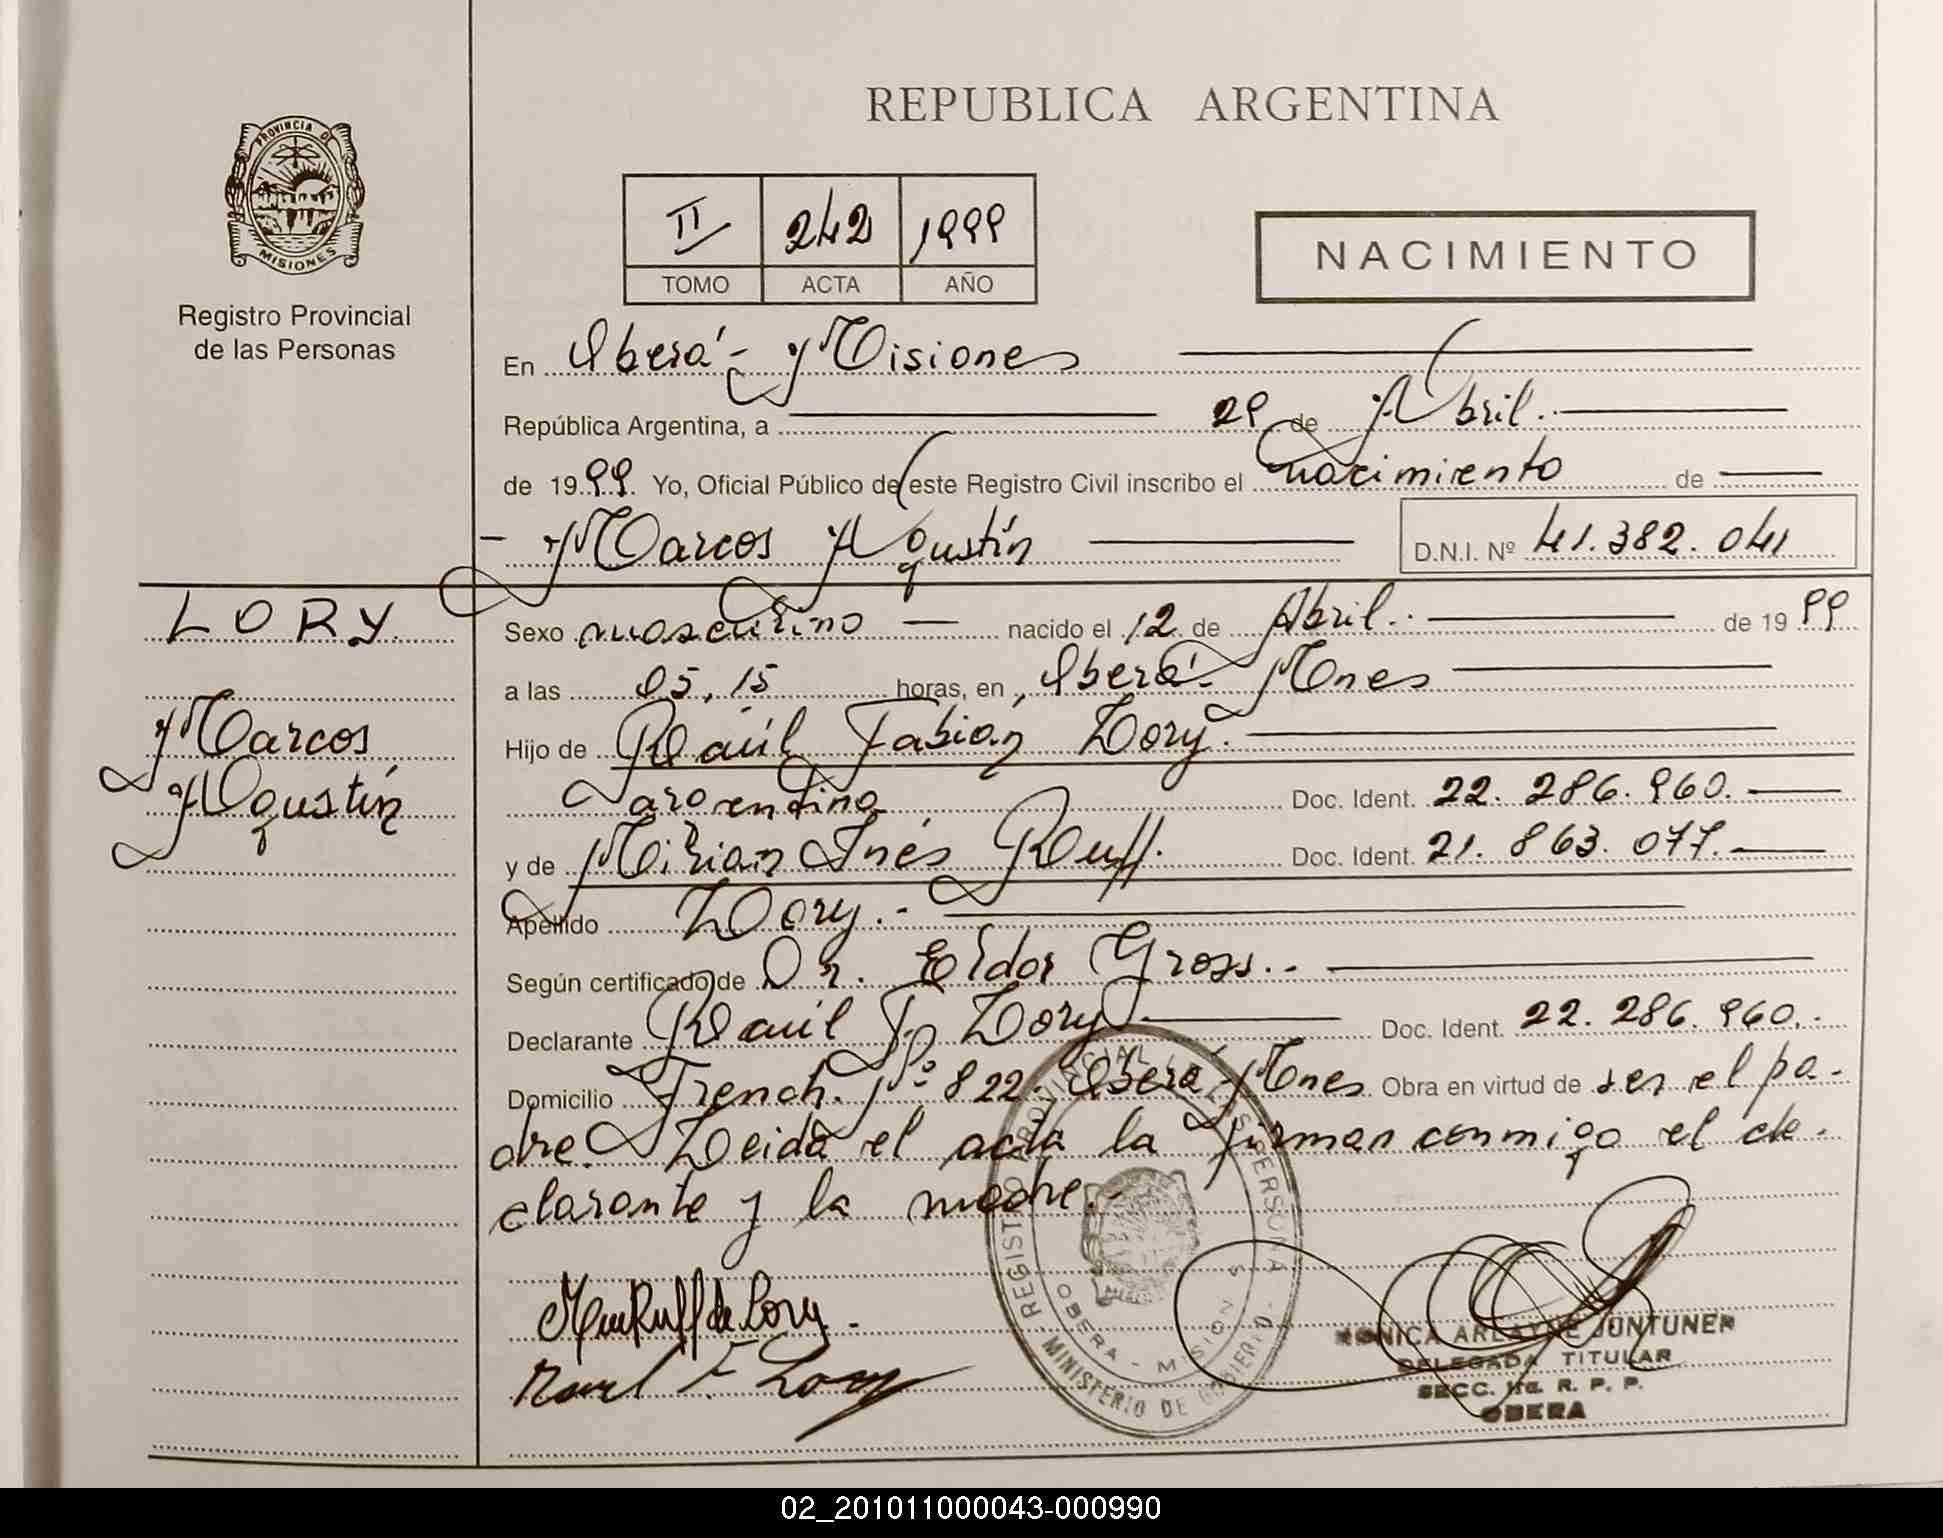 REPUBLICA ARGENTINA
PROVINCIA DE
MISIONES
Registro Provincial
de las Personas
II 242 1999
TOMO ACTA AÑO
NACIMIENTO
En Oberá - Misiones
República Argentina, a 29 de Abril.
de 1999. Yo, Oficial Público de este Registro Civil inscribo el nacimiento de
Marcos Agustín D.N.I. Nº 41.382.041
LORY
Marcos
Agustín
Sexo masculino nacido el 12 de Abril. de 1999
a las 05,15 horas, en Oberá - Mnes
Hijo de Raúl Fabián Lory.
argentino Doc. Ident. 22.286.960.
y de Mirian Inés Ruff. Doc. Ident. 21.863.077.
Apellido Lory.-
Según certificado de Dr. Eldor Gross.-
Declarante Raúl F. Lory Doc. Ident. 22.286.960.
Domicilio French Nº 822. Oberá - Mnes Obra en virtud de ser el pa-
dre. Leida el acta la firman conmigo el de-
clarante y la madre.-
Ruff de Lory.
Raul F. Lory
REGISTRO PROVINCIAL DE LAS PERSONAS
OBERA - MISIONES
MINISTERIO DE GOBIERNO
MONICA ARLAYNE JUNTUNEN
DELEGADA TITULAR
SECC. R. P. P.
OBERA
02_201011000043-000990